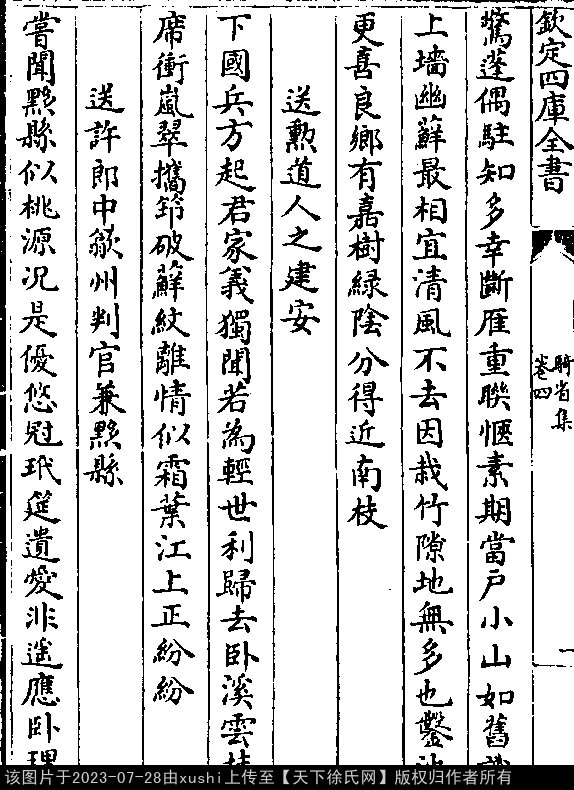 欽定四庫全書
騎省集
卷四
驚蓬偶駐知多幸斷雁重聯愜素期當户小山如舊識
上墻幽蘚最相宜清風不去因栽竹隙地無多也鑿池
更喜良鄉有嘉樹緑陰分得近南枝
送勲道人之建安
下國兵方起君家義獨聞若為輕世利歸去卧溪雲挂
席衝嵐翠攜筇破蘚紋離情似霜葉江上正紛紛
送許郎中歙州判官兼黟縣
嘗聞黟縣似桃源况是優悠冠玳筵遺愛非遥應卧理
该图片于2023-07-28由xushi上传至【天下徐氏网】版权归作者所有